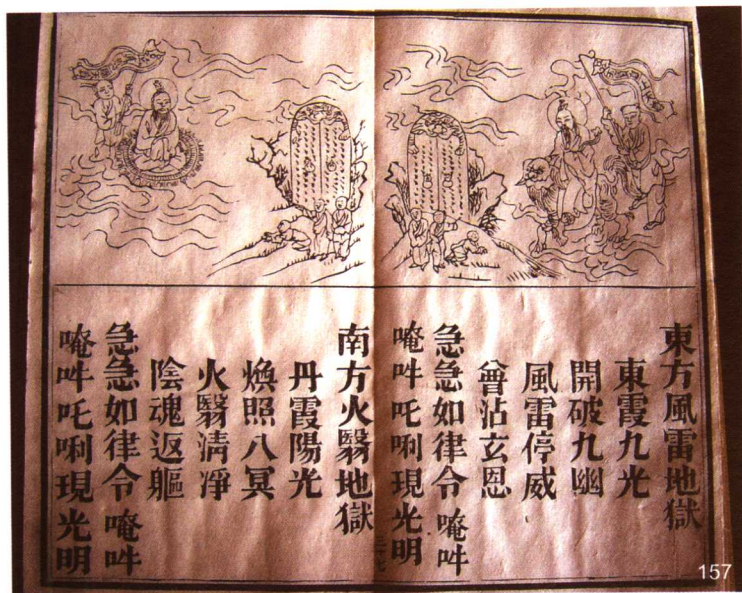 東方風雷地獄
東霞九光
開破九幽
風雷停威
曾沾玄恩
急急如律令 唵吽
唵吽吒唎現光明
南方火翳地獄
丹霞陽光
煥照八冥
火翳清淨
陰魂返軀
急急如律令 唵吽
唵吽吒唎現光明
157